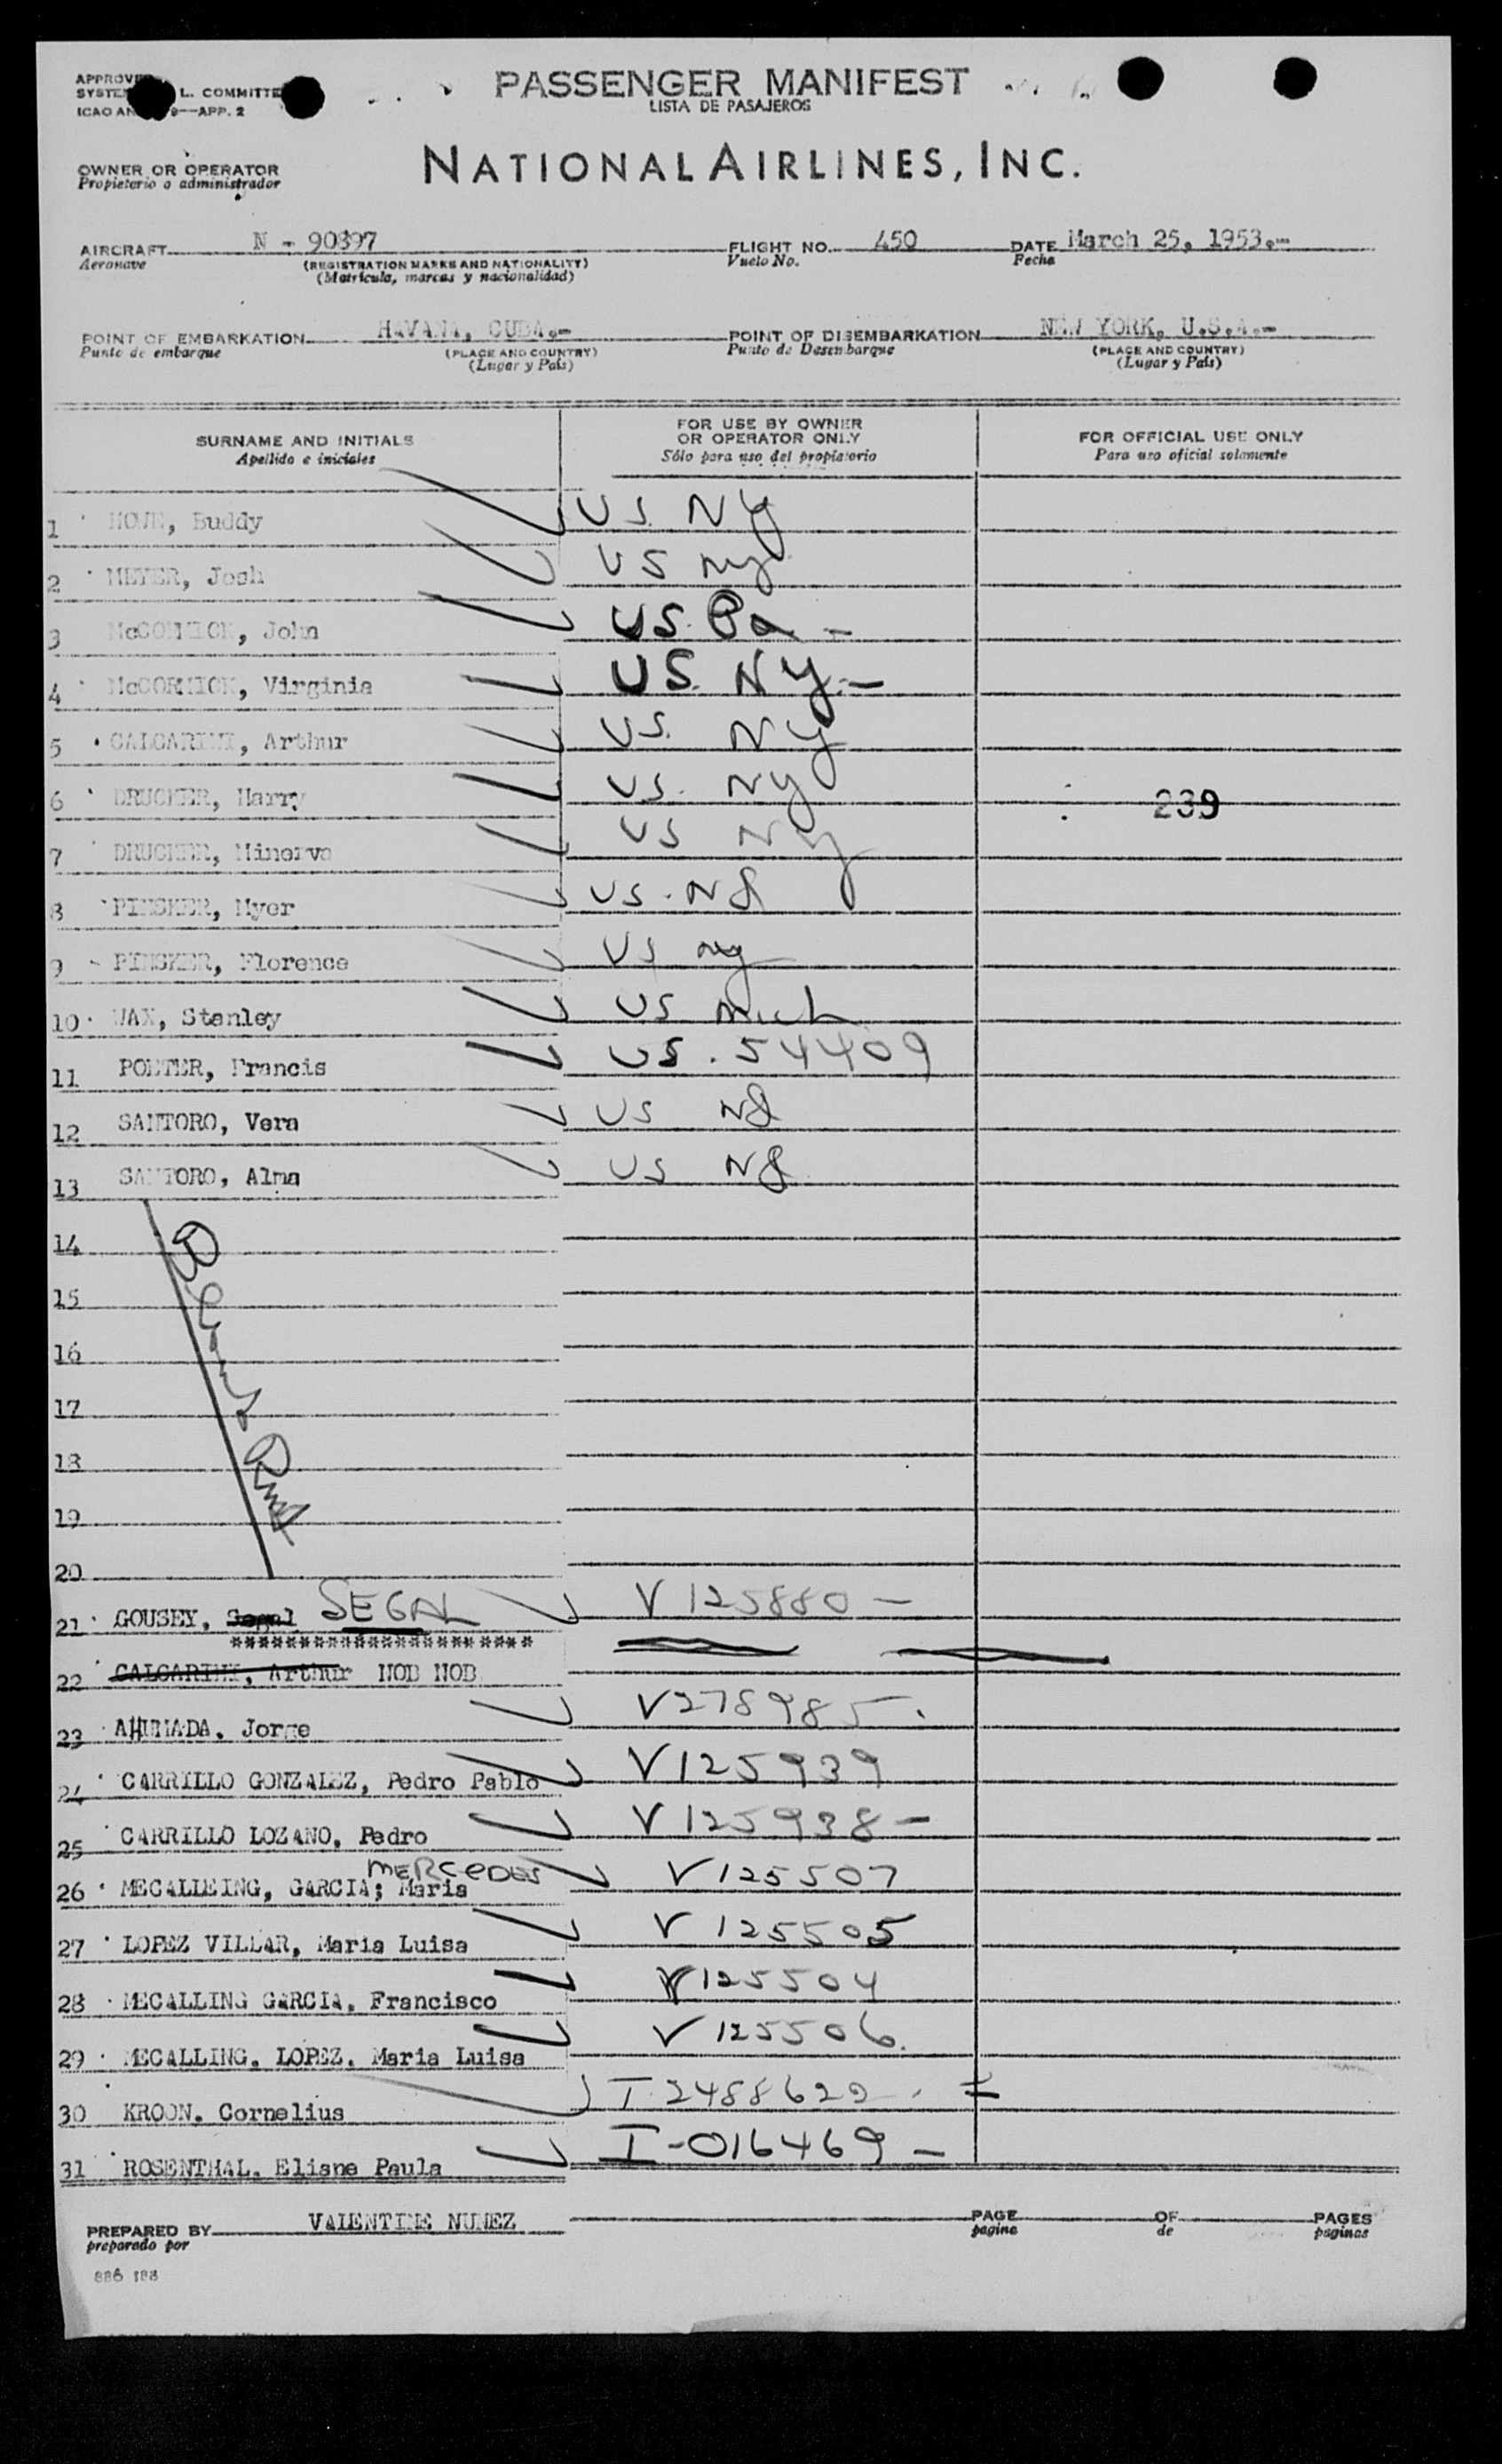 PASSENGER MANIFEST
LISTA DE PASAJEROS
L. COMMITTE
ICAO AN 9—APP. 2
NATIONAL AIRLINES, INC.
OWNER OR OPERATOR
Propietario o administrador
AIRCRAFT N - 90897 FLIGHT NO. 450 DATE March 25, 1953.-
Aeronave (REGISTRATION MARKS AND NATIONALITY) Vuelo No. Fecha
(Matrícula, marcas y nacionalidad)
POINT OF EMBARKATION HAVANA, CUBA.- POINT OF DISEMBARKATION NEW YORK, U.S.A.-
Punto de embarque (PLACE AND COUNTRY) Punto de Desembarque (PLACE AND COUNTRY)
(Lugar y País) (Lugar y País)
SURNAME AND INITIALS FOR USE BY OWNER OR OPERATOR ONLY FOR OFFICIAL USE ONLY
Apellido e iniciales Sólo para uso del propietario Para uso oficial solamente
1 Buddy US. NY
2 MEYER, Josh US NY
3 McCORMICK, John US. Pa -
4 McCORMICK, Virginia US. NY.-
5 CALCARINI, Arthur US. NY
6 DRUCKER, Harry US. NY 239
7 DRUCKER, Minerva US NY
8 PINSKER, Myer US. NJ
9 PINSKER, Florence US NY
10 WAX, Stanley US Mich
11 PORTER, Francis US. 54409
12 SANTORO, Vera US NJ
13 SANTORO, Alma US NJ
14
15
16
17
18
19
20
21 GOUSEY, Segal SEGAL V 125880 -
**********************
22 CALCARINI, Arthur NOB NOB
23 AHUMADA, Jorge V278985.
24 CARRILLO GONZALEZ, Pedro Pablo V125939
25 CARRILLO LOZANO, Pedro V125938-
MERCEDES
26 MECALLEING, GARCIA; Maria V125507
27 LOPEZ VILLAR, Maria Luisa V 125505
28 MECALLING GARCIA, Francisco V125504
29 MECALLING, LOPEZ, Maria Luisa V125506.
30 KROON, Cornelius I 2488622
31 ROSENTHAL, Eliane Paula I-016469-
PREPARED BY VALENTINE NUNEZ PAGE OF PAGES
preparado por pagina de paginas